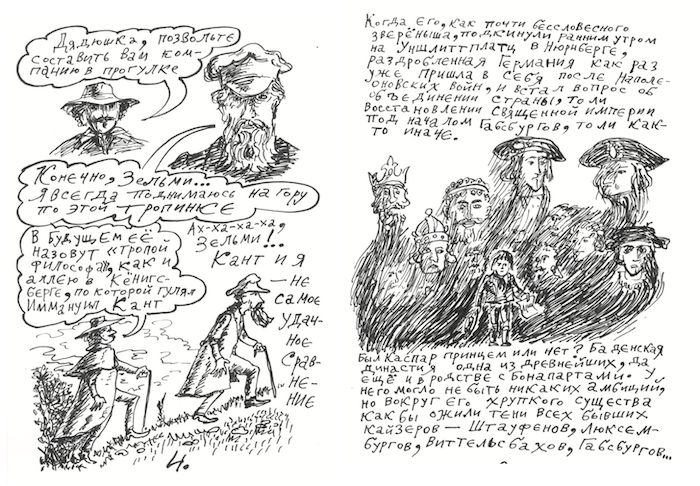 Дядюшка, позвольте
составить вам ком-
панию в прогулке
Конечно, Зельми...
Я всегда поднимаюсь на гору
по этой тропинке
В будущем её
назовут «тропой
философа», как и
аллею в Кёнигс-
берге, по которой гулял
Иммануил Кант
Ах-ха-ха-ха,
Зельми!..
Кант и я
— не
самое
удач-
ное
срав-
не-
ние
4.
Когда его, как почти бессловесного
зверёныша, подкинули ранним утром
на Уншлиттплатц в Нюрнберге,
раздробленная Германия как раз
уже пришла в себя после наполе-
оновских войн, и встал вопрос об
объединении страны, то ли
восстановлении Священной империи
под началом Габсбургов, то ли как-
то иначе.
Был Каспар принцем или нет? Баденская
династия одна из древнейших, да
ещё и в родстве с Бонапартами. У
него могло не быть никаких амбиций,
но вокруг его хрупкого существа
как бы ожили тени всех бывших
кайзеров — Штауфенов, Люксем-
бургов, Виттельсбахов, Габсбургов...